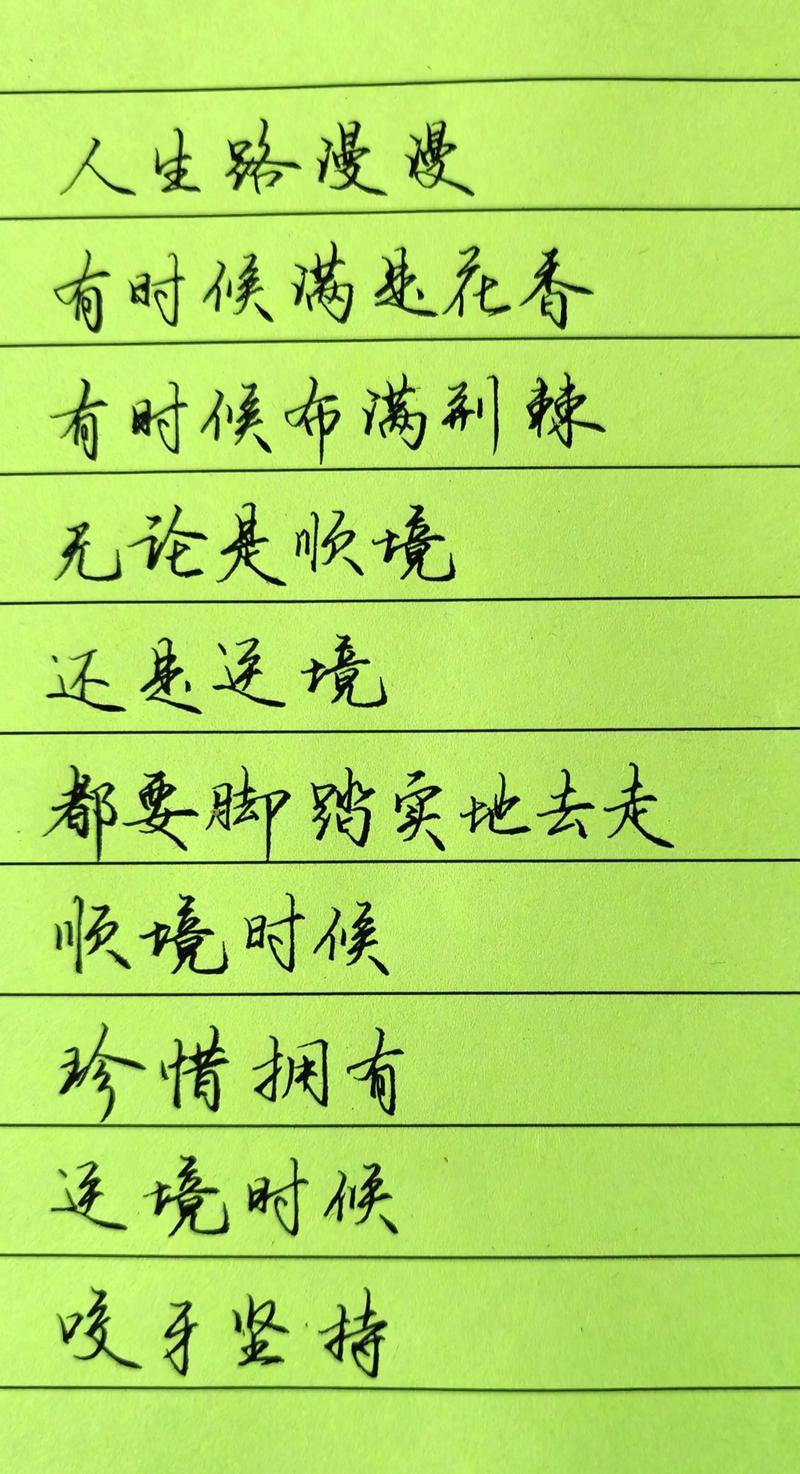 人生路漫漫
有时候满是花香
有时候布满荆棘
无论是顺境
还是逆境
都要脚踏实地去走
顺境时候
珍惜拥有
逆境时候
咬牙坚持